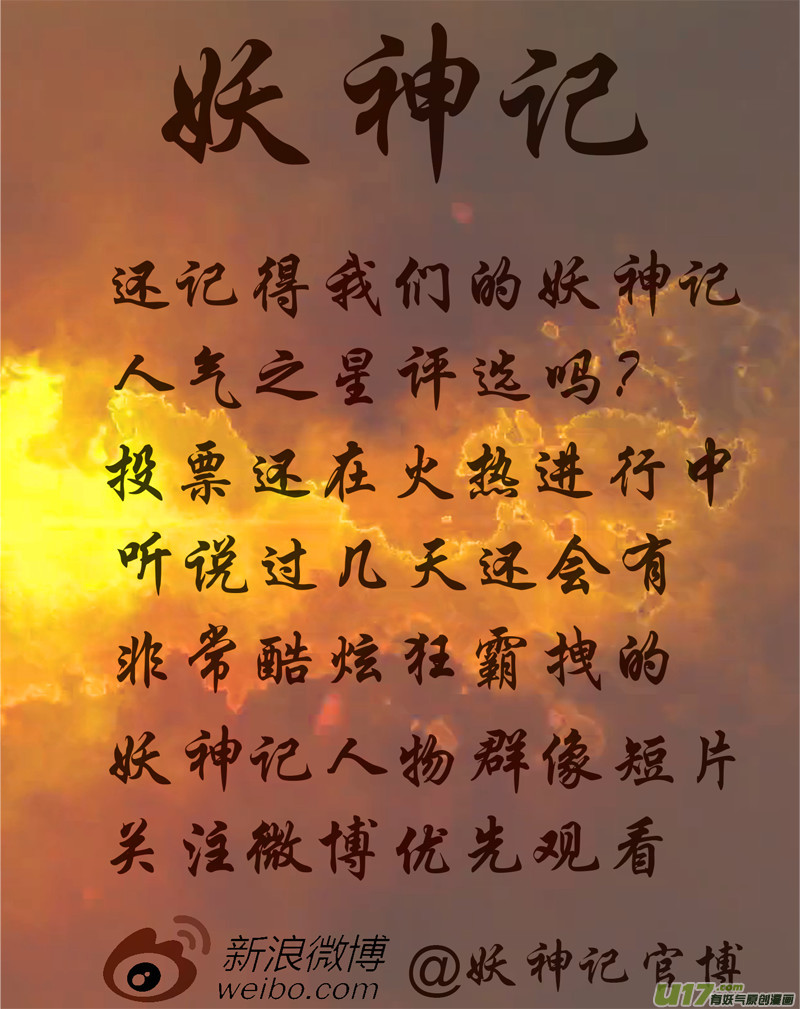 妖神记
还记得我们的妖神记
人气之星评选吗?
投票还在火热进行中
听说过几天还会有
非常酷炫狂霸拽的
妖神记人物群像短片
关注微博优先观看
新浪微博
weibo.com
@妖神记官博
U17.com
有妖气原创漫画